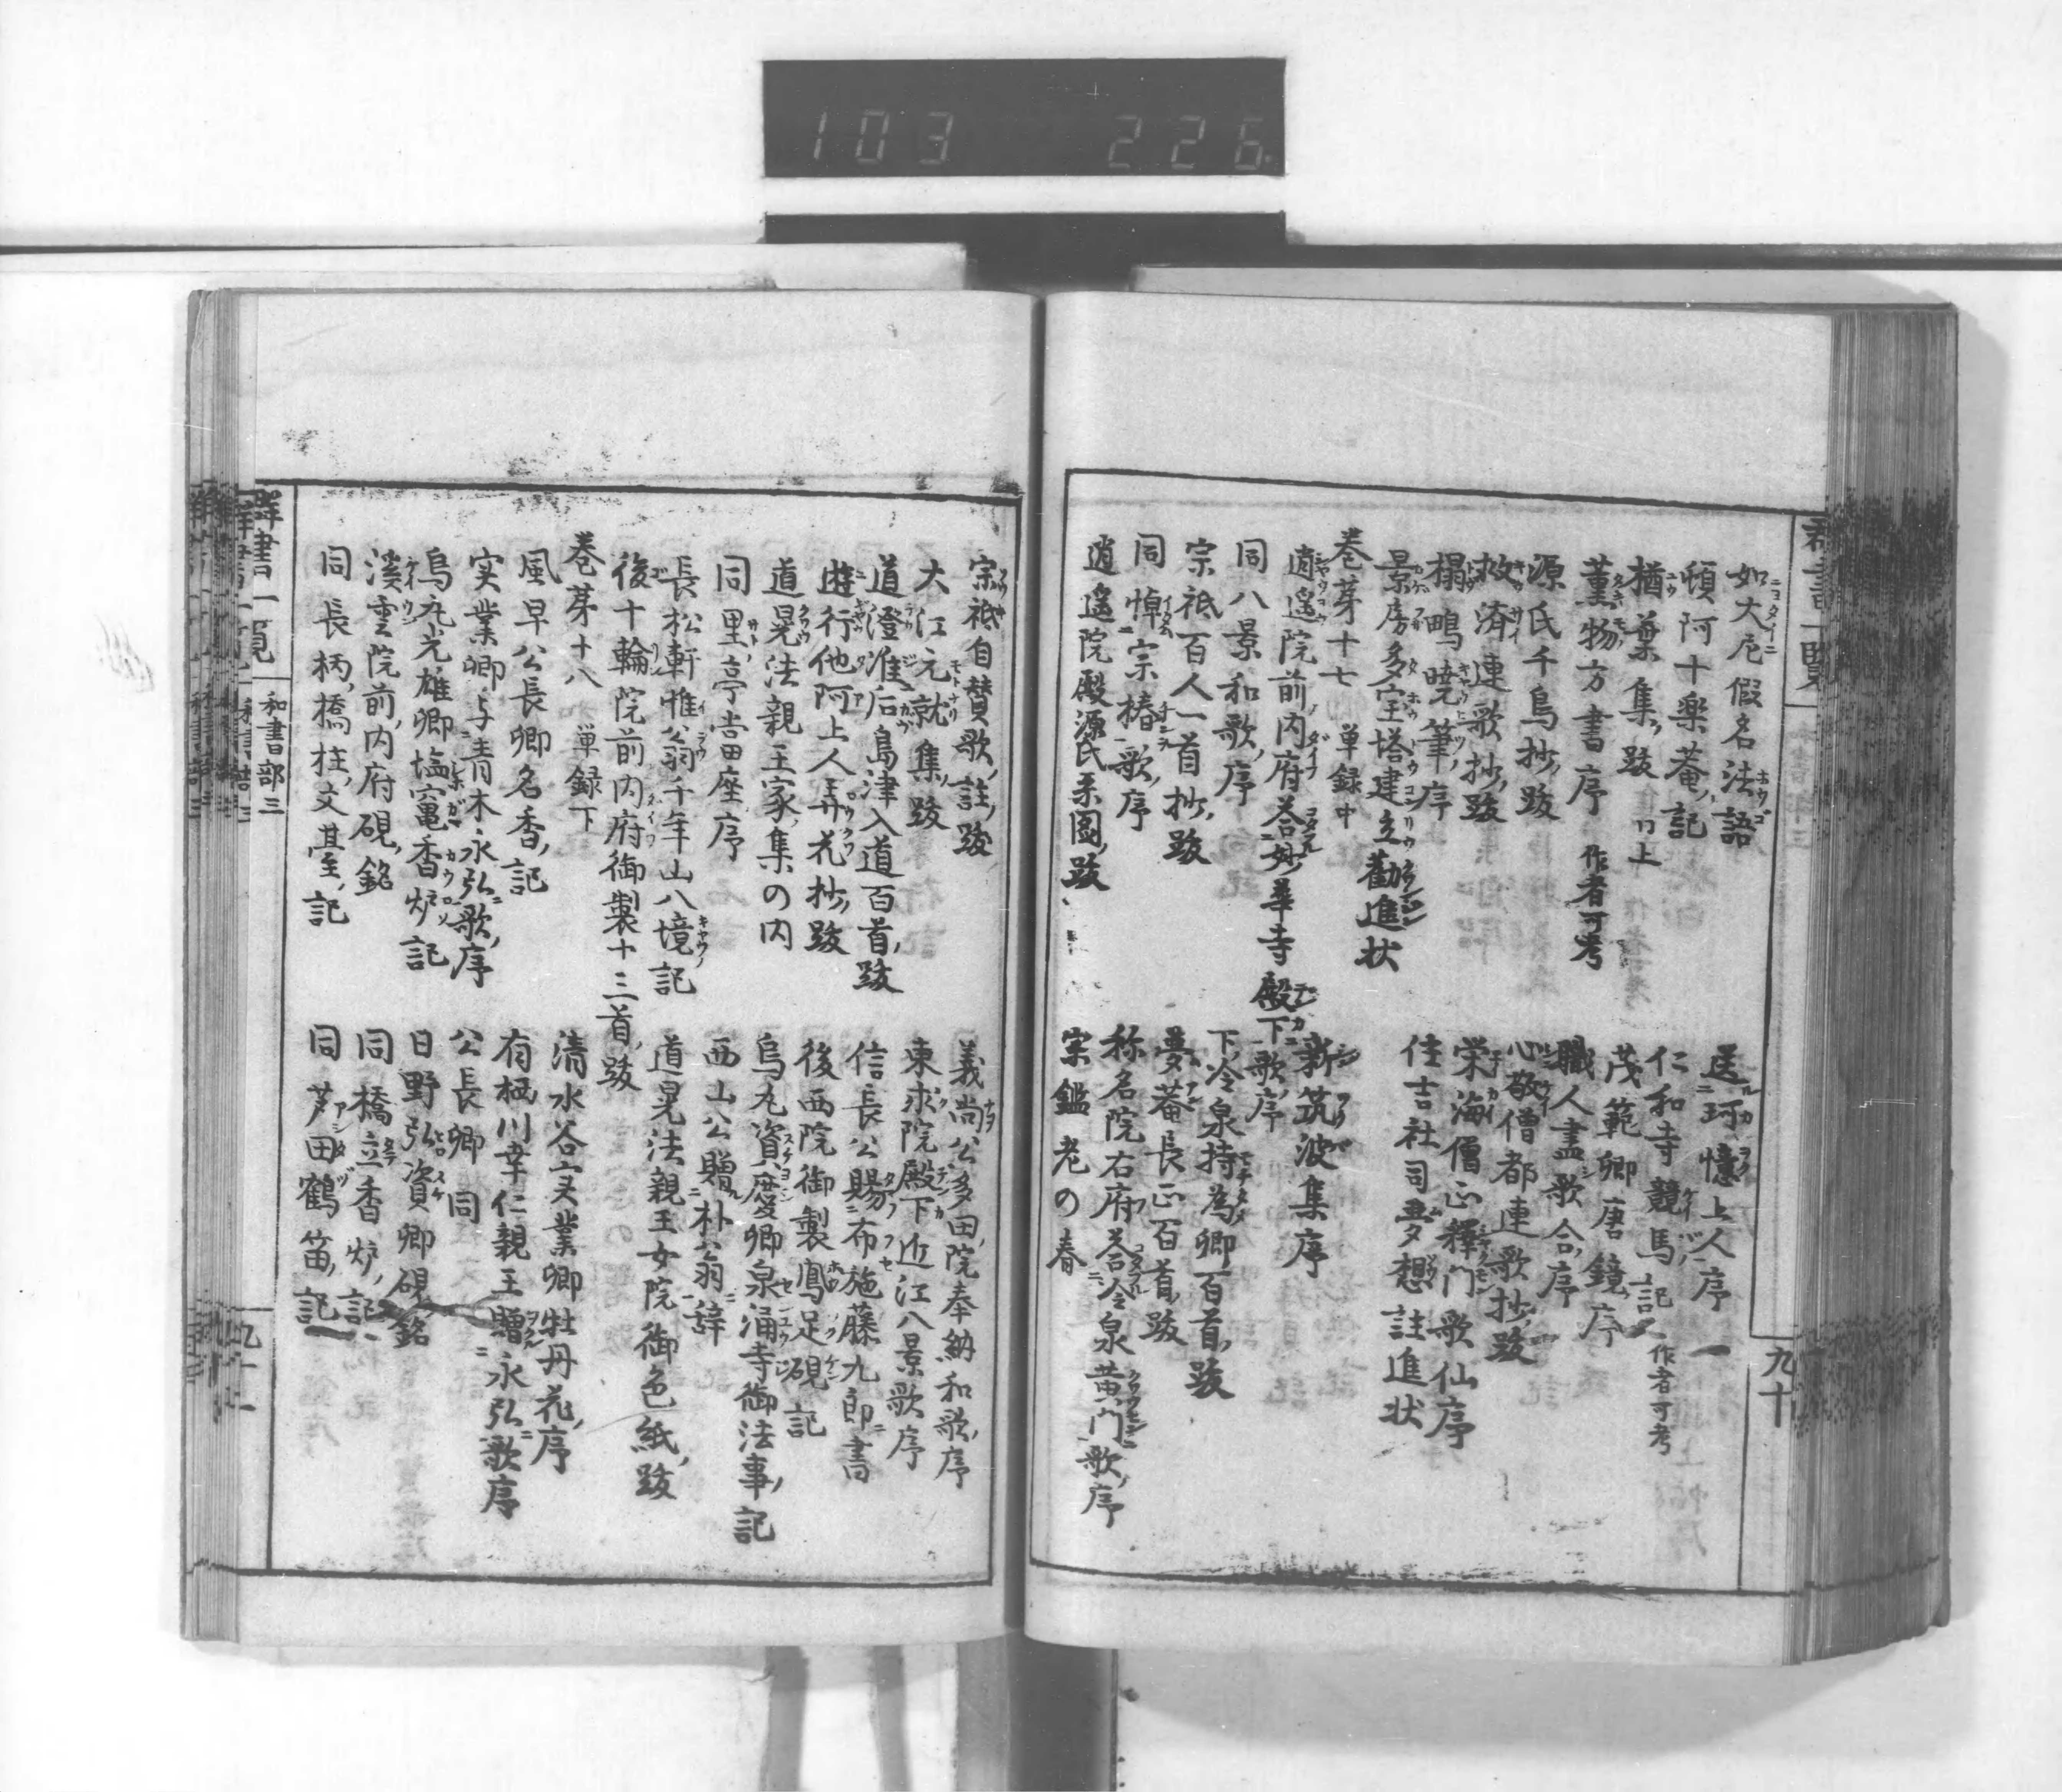 103 226
群書一覧
九十
如大尼假名法語
送珂憶上人序
頓阿十楽菴記
仁和寺競馬記 作者可考
楢葉集跋 同上
茂範卿唐鏡序
薫物方書序 作者可考
職人盡歌合序
源氏千鳥抄跋
心敬僧都連歌抄跋
救済連歌抄跋
栄海僧正釋門歌仙序
榻鴫暁筆序
住吉社司夢想註進状
景房多宝塔建立勸進状
巻芽十七 単録中
新筑波集序
逍遙院前内府答妙華寺殿下歌序
同八景和歌序
下冷泉持為卿百首跋
宗祇百人一首抄跋
夢菴長正百首跋
同悼宗椿歌序
称名院右府答冷泉黄門歌序
逍遙院殿源氏系圖跋
宗鑑老の春
宗祇自賛歌註跋
義尚公多田院奉納和歌序
大江元就集跋
東求院殿下近江八景歌序
道澄准后島津入道百首跋
信長公賜布施藤九郎書
遊行他阿上人弄花抄跋
後西院御製鳳足硯記
道晃法親王家集の内
烏丸資慶卿泉涌寺御法事記
同里亭当座序
西山公贈朴翁辞
長松軒惟翁千年山八境記
道晃法親王女院御色紙跋
後十輪院前内府御製十三首跋
巻芽十八 単録下
清水谷実業卿牡丹花序
風早公長卿名香記
有栖川幸仁親王贈永弘歌序
実業卿与青木永弘歌序
公長卿同
烏丸光雄卿塩竃香炉記
日野弘資卿硯銘
溪雲院前内府硯銘
同橋立香炉記
同長柄橋柱文臺記
同芦田鶴笛記
群書一覧 和書部三
九十二